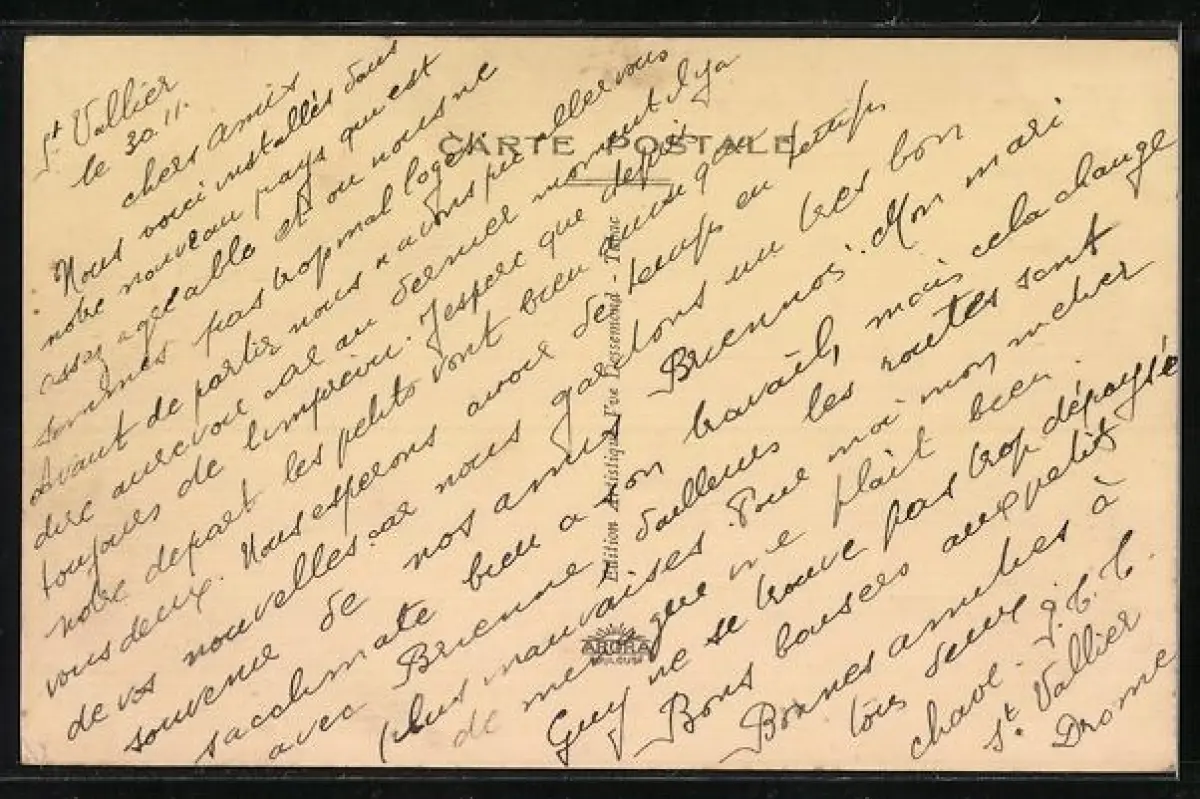 St Vallier
le 30.11.
chers amis
Nous voici installés dans
notre nouveau pays qui est
assez agréable et ou nous ne
sommes pas trop mal logés.
Avant de partir nous n'avons pu aller vous
dire aurevoir car au dernier moment il y a
toujours de l'imprévu. J'espère que depuis
notre départ les petits vont bien ainsi que
vous deux. Nous espérons avoir de temps en temps
de vos nouvelles car nous gardons un très bon
souvenir de nos amis Briennois. Mon mari
s'acclimate bien a son travail, mais cela change
avec Brienne d'ailleurs les routes sont
plus mauvaises. Pour moi mon metier
de me plait bien.
Guy ne se trouve pas trop dépaysé
Bons baisers aux petits
Bonnes amitiés à
tous deux.
St Vallier
Drome
CARTE POSTALE
Edition Artistique Vve Dessemond - Tabac
ABORA
TOULOUSE